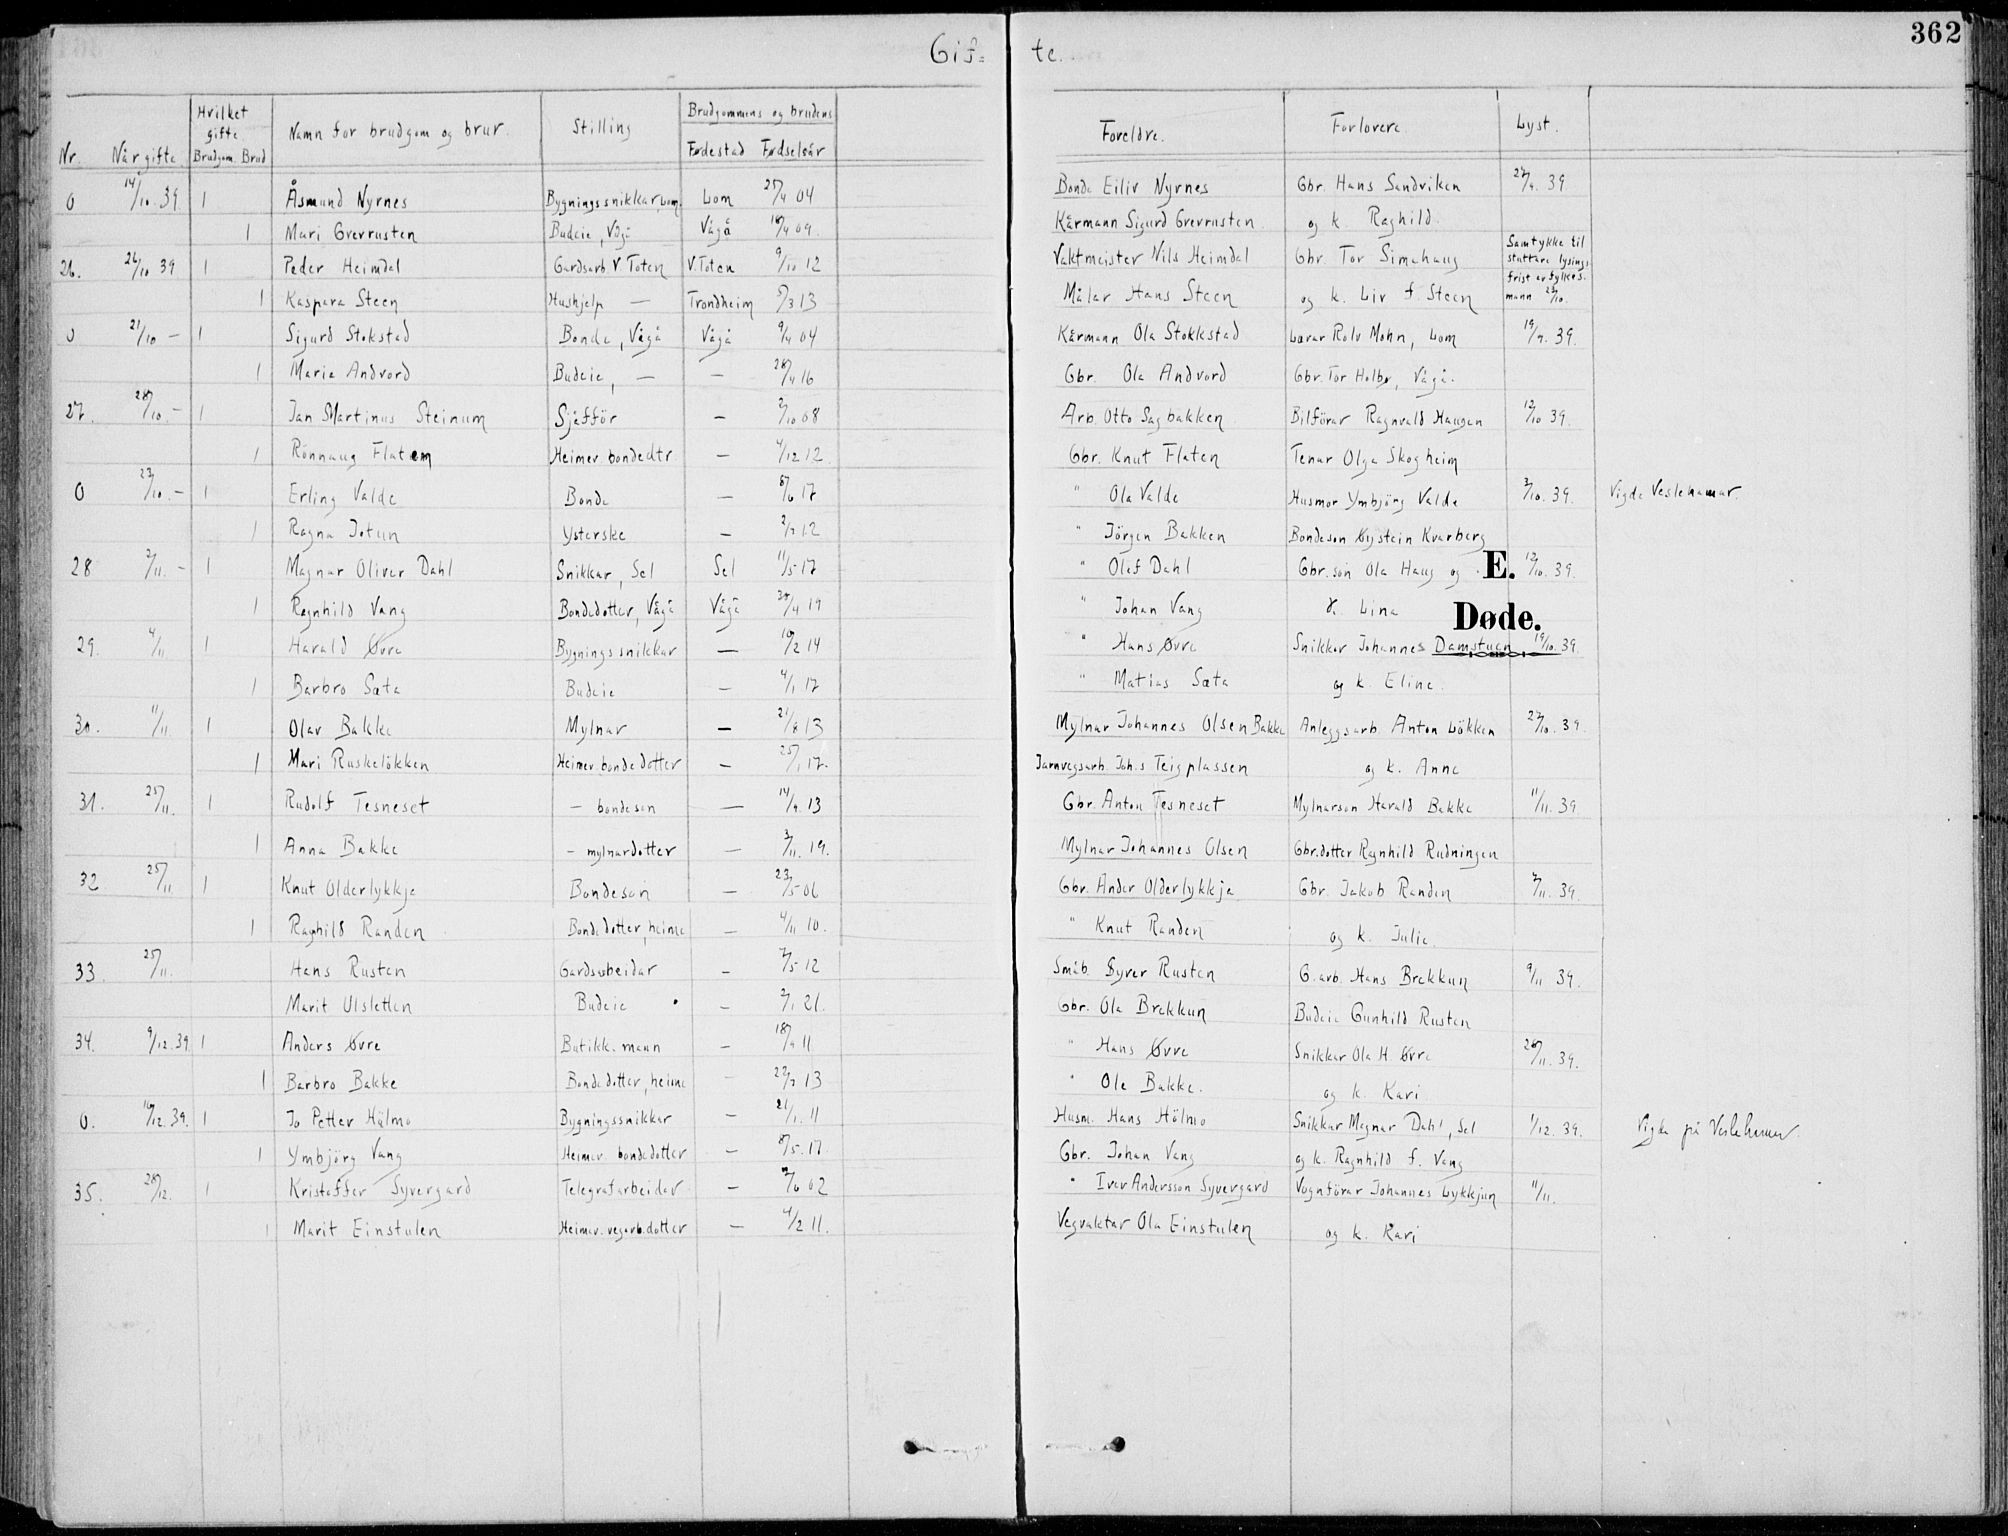 362
Gif- te.
Nr. Når gifte. Hvilket gifte Brudgom. Brud Namn for brudgom og brur. Stilling Brudgommens og brudens Fødestad Fødselsår Foreldre. Forlovere. Lyst.
0 14/10.39. 1 Åsmund Nyrnes Bygningssnikkar, Lom. Lom 25/4 04 Bonde Eiliv Nyrnes Gbr. Hans Sandviken 27/9. 39.
1 Mari Grevrusten Budeie, Vågå Vågå 18/4 09. Kårmann Sigurd Grevrusten og k. Ragnhild.
26. 26/10 39 1 Peder Heimdal Gardsarb. V. Toten V. Toten 9/10 12 Vaktmeister Nils Heimdal Gbr. Tor Simehaug Samtykke til stuttare lysings-
1 Kaspara Steen Hushjelp — Trondheim 5/3 13 Målar Hans Steen og k. Liv f. Steen frist av fylkes-mann 23/10.
0 21/10 — 1 Sigurd Stokstad Bonde, Vågå Vågå 9/4 04 Kårmann Ola Stokkstad Lærar Rolv Mohn, Lom 19/9. 39.
1 Marie Andvord Budeie, — — 28/4 16 Gbr. Ola Andvord Gbr. Tor Holbø, Vågå.
27. 28/10.— 1 Jan Martinus Steinum Sjåfför — 2/10 08 Arb. Otto Sagbakken Bilförar Ragnvald Haugen 12/10 39.
1 Rönnaug Flaten Heimev. bondedtr. — 4/12 12. Gbr. Knut Flaten Tenar Olga Skogheim
0 23/10.— 1 Erling Valde Bonde — 8/6 17 " Ola Valde Husmor Ymbjörg Valde 3/10. 39. Vigde Veslehamar.
1 Ragna Jotun Ysterske — 2/7 12 " Jörgen Bakken Bondeson Øystein Kvarberg
28 2/11. — 1 Magnar Oliver Dahl Snikkar, Sel Sel 11/5 17 " Olaf Dahl Gbr.sön Ola Haug og E. 13/10. 39.
1 Ragnhild Vang Bondedotter, Vågå Vågå 30/4 19 " Johan Vang k. Lina
Døde.
29. 4/11 1 Harald Øvre Bygningssnikkar — 10/2 14 " Hans Øvre Snikkar Johannes Damstuen 19/10. 39.
1 Barbro Sæta Budeie — 4/1 17 " Matias Sæta og k. Eline.
30. 11/11. 1 Olav Bakke Mylnar — 21/8 13 Mylnar Johannes Olsen Bakke Anleggsarb. Anton Lökken 27/10. 39.
1 Mari Ruskelökken Heimev. bondedotter — 25/1 17. Jarnvegsarb. Joh.s Teigplassen og k. Anne
31. 25/11. 1 Rudolf Tesneset — bondeson — 14/9. 13 Gbr. Anton Tesneset Mylnarson Harald Bakke 11/11. 39
1 Anna Bakke — mylnardotter — 3/11. 19. Mylnar Johannes Olsen Gbr.dotter Ragnhild Rudningen
32 25/11 1 Knut Olderlykkje Bondesön — 23/5 06 Gbr. Ander Olderlykkje Gbr. Jakob Randen 7/11. 39.
1 Ragnhild Randen Bondedotter, heime — 4/11 10. " Knut Randen og k. Julie.
33. 25/11. Hans Rusten Gardsarbeidar — 7/5 12 Småb. Syver Rusten G.arb. Hans Brekkun 9/11 39.
Marit Ulsletten Budeie — 2/1 21. Gbr. Ola Brekkun Budeie Gunhild Rusten
34. 9/12.39. 1 Anders Øvre Butikk. mann — 18/9 11 " Hans Øvre Snikkar Ola H Øvre 26/11. 39.
1 Barbro Bakke Bondedotter, heime — 22/7 13 " Ole Bakke. og k. Kari.
0. 16/12.39. 1 Jo Petter Hölmo Bygningssnikkar — 21/1. 11 Husm. Hans Hölmo Snikkar Magnar Dahl, Sel 1/12. 39. Vigde på Veslehamar.
1 Ymbjörg Vang Heimev. bondedotter — 8/5. 17. Gbr. Johan Vang og k. Ragnhild f. Vang
35. 28/12. 1 Kristoffer Syvergard Telegrafarbeidar — 2/6 02 " Iver Andersson Syvergard Vognförar Johannes Lykkjun 11/11.
1 Marit Einstulen Heimev. vegarb.dotter — 4/2 11. Vegvaktar Ola Einstulen og k. Kari